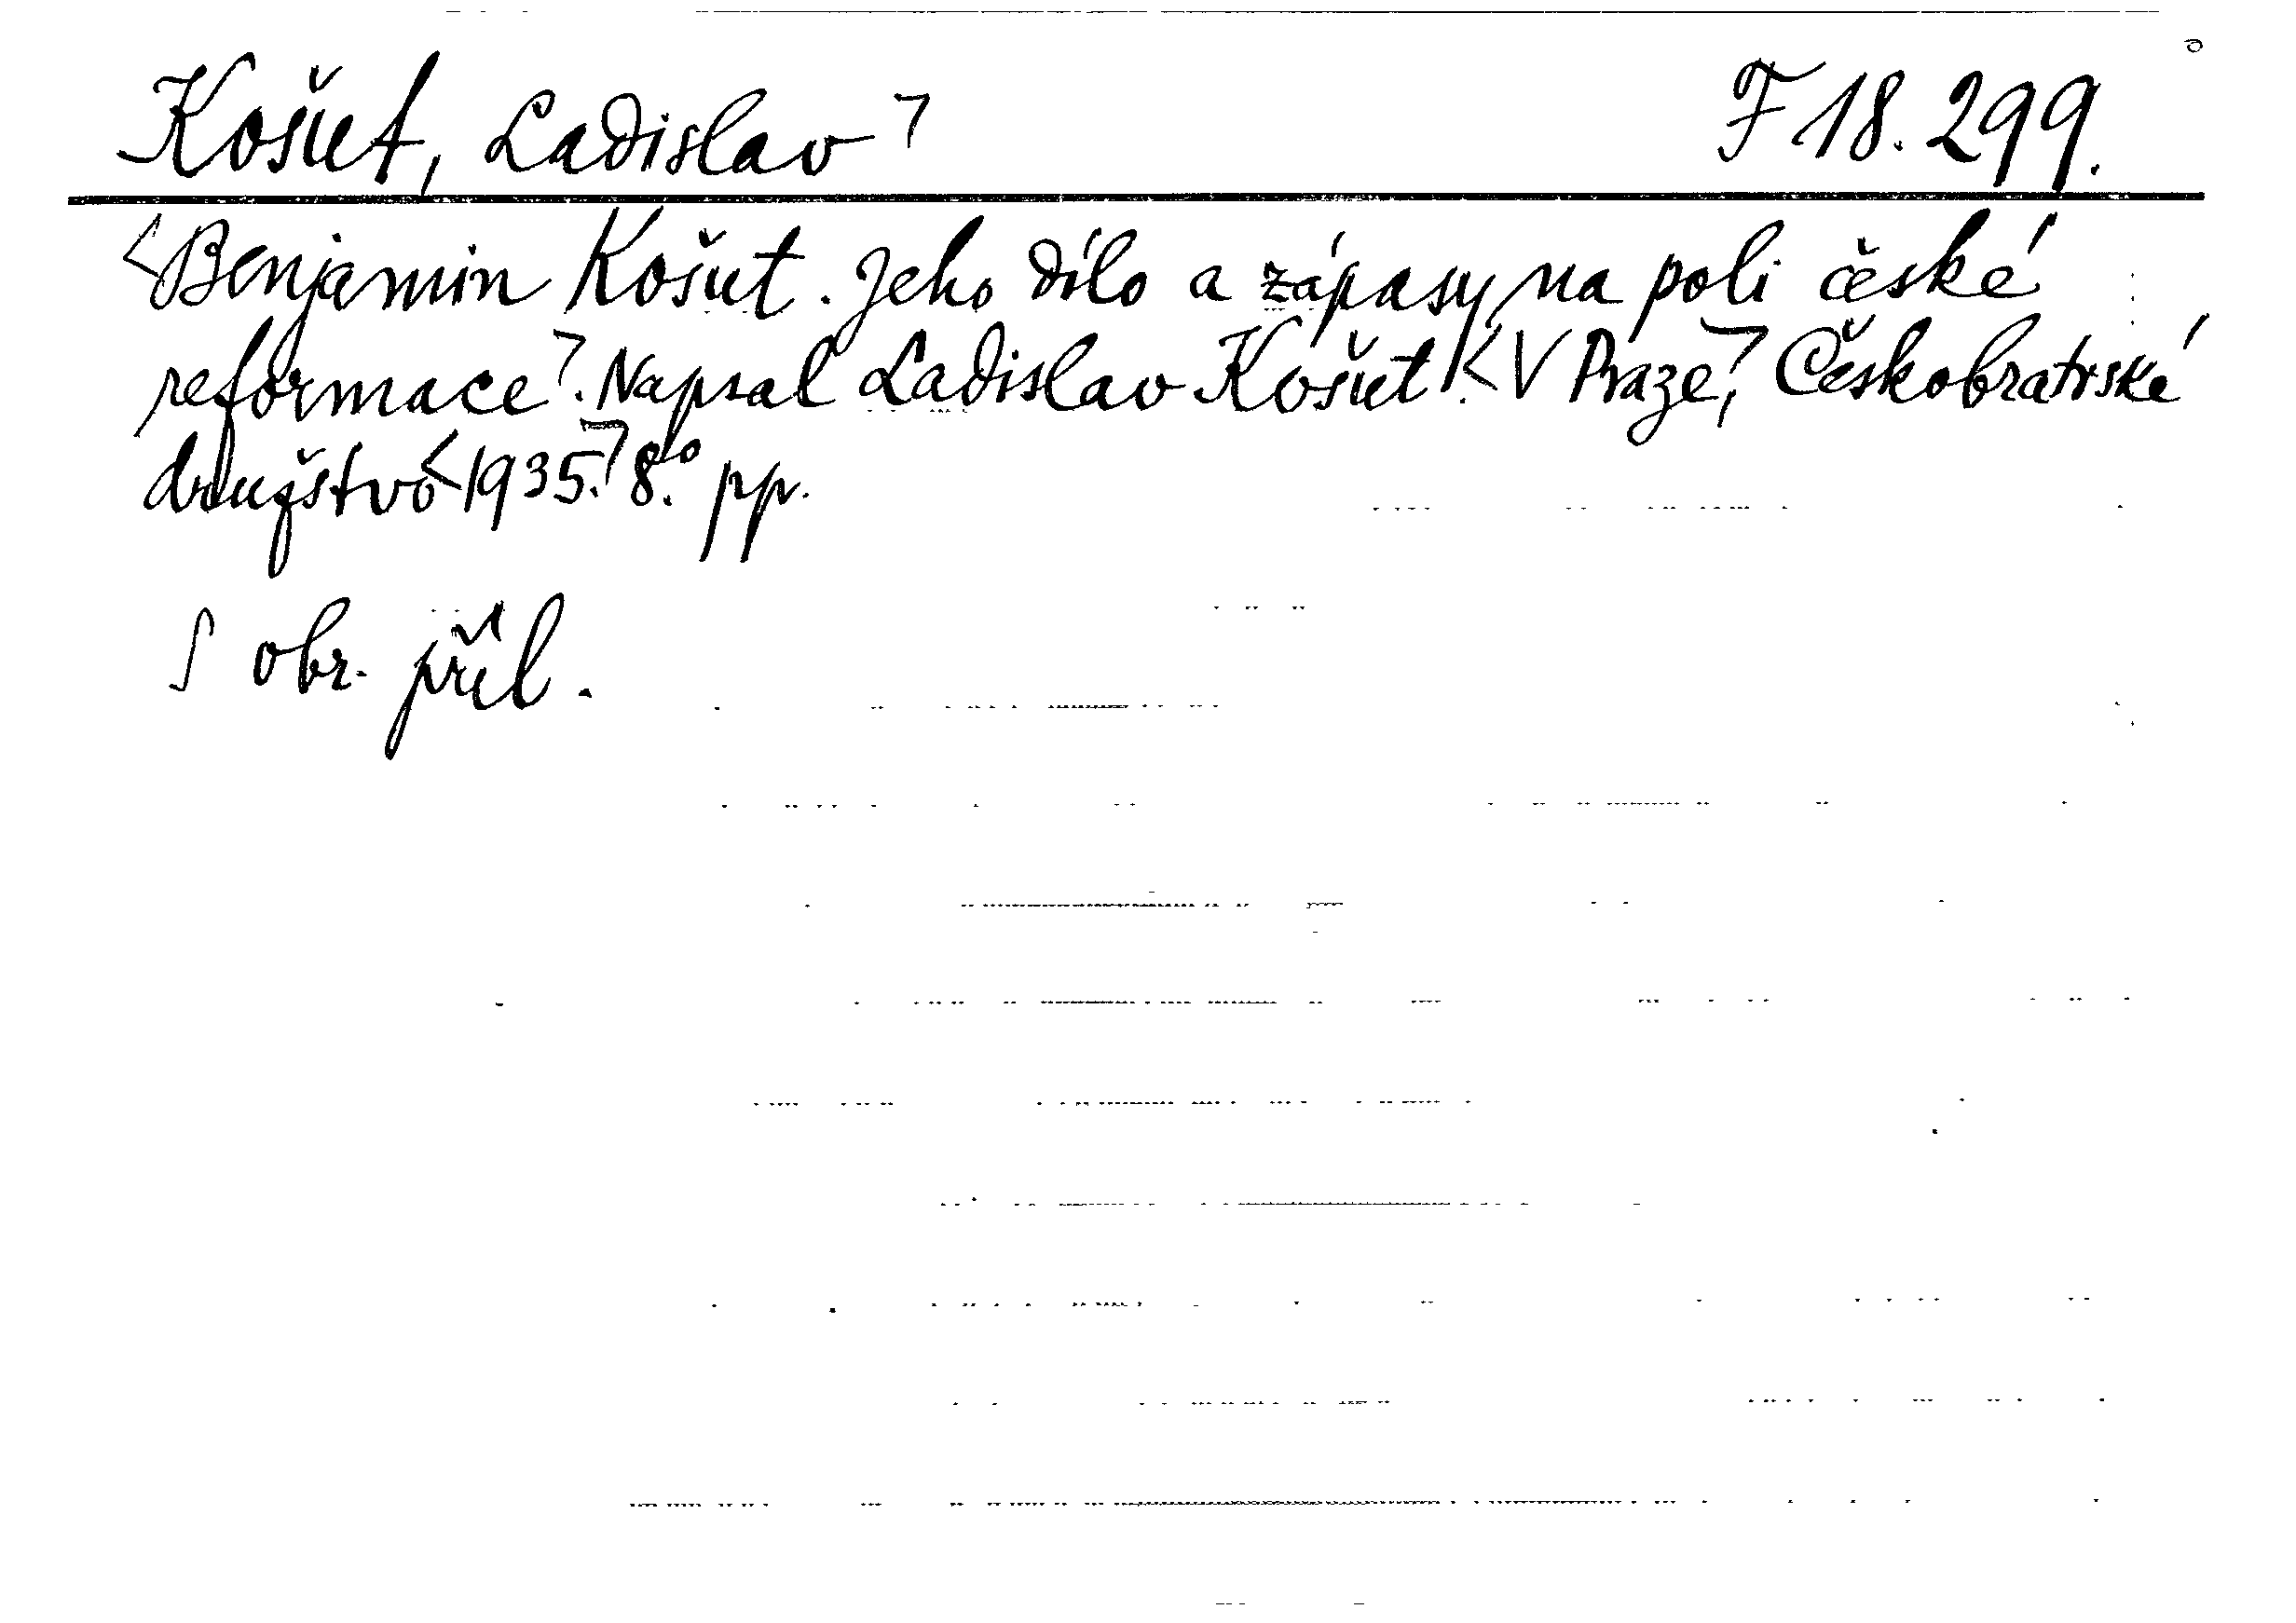 Košut, Ladislav ꓶ F 18.299.
<Benjamin Košut. Jeho dílo a zápasy na poli české
reformace⁊. Napsal Ladislav Košut. <V Praze,⁊ Českobratrské
družstvo <1935.⁊ 8.° pp.
S obr. příl.